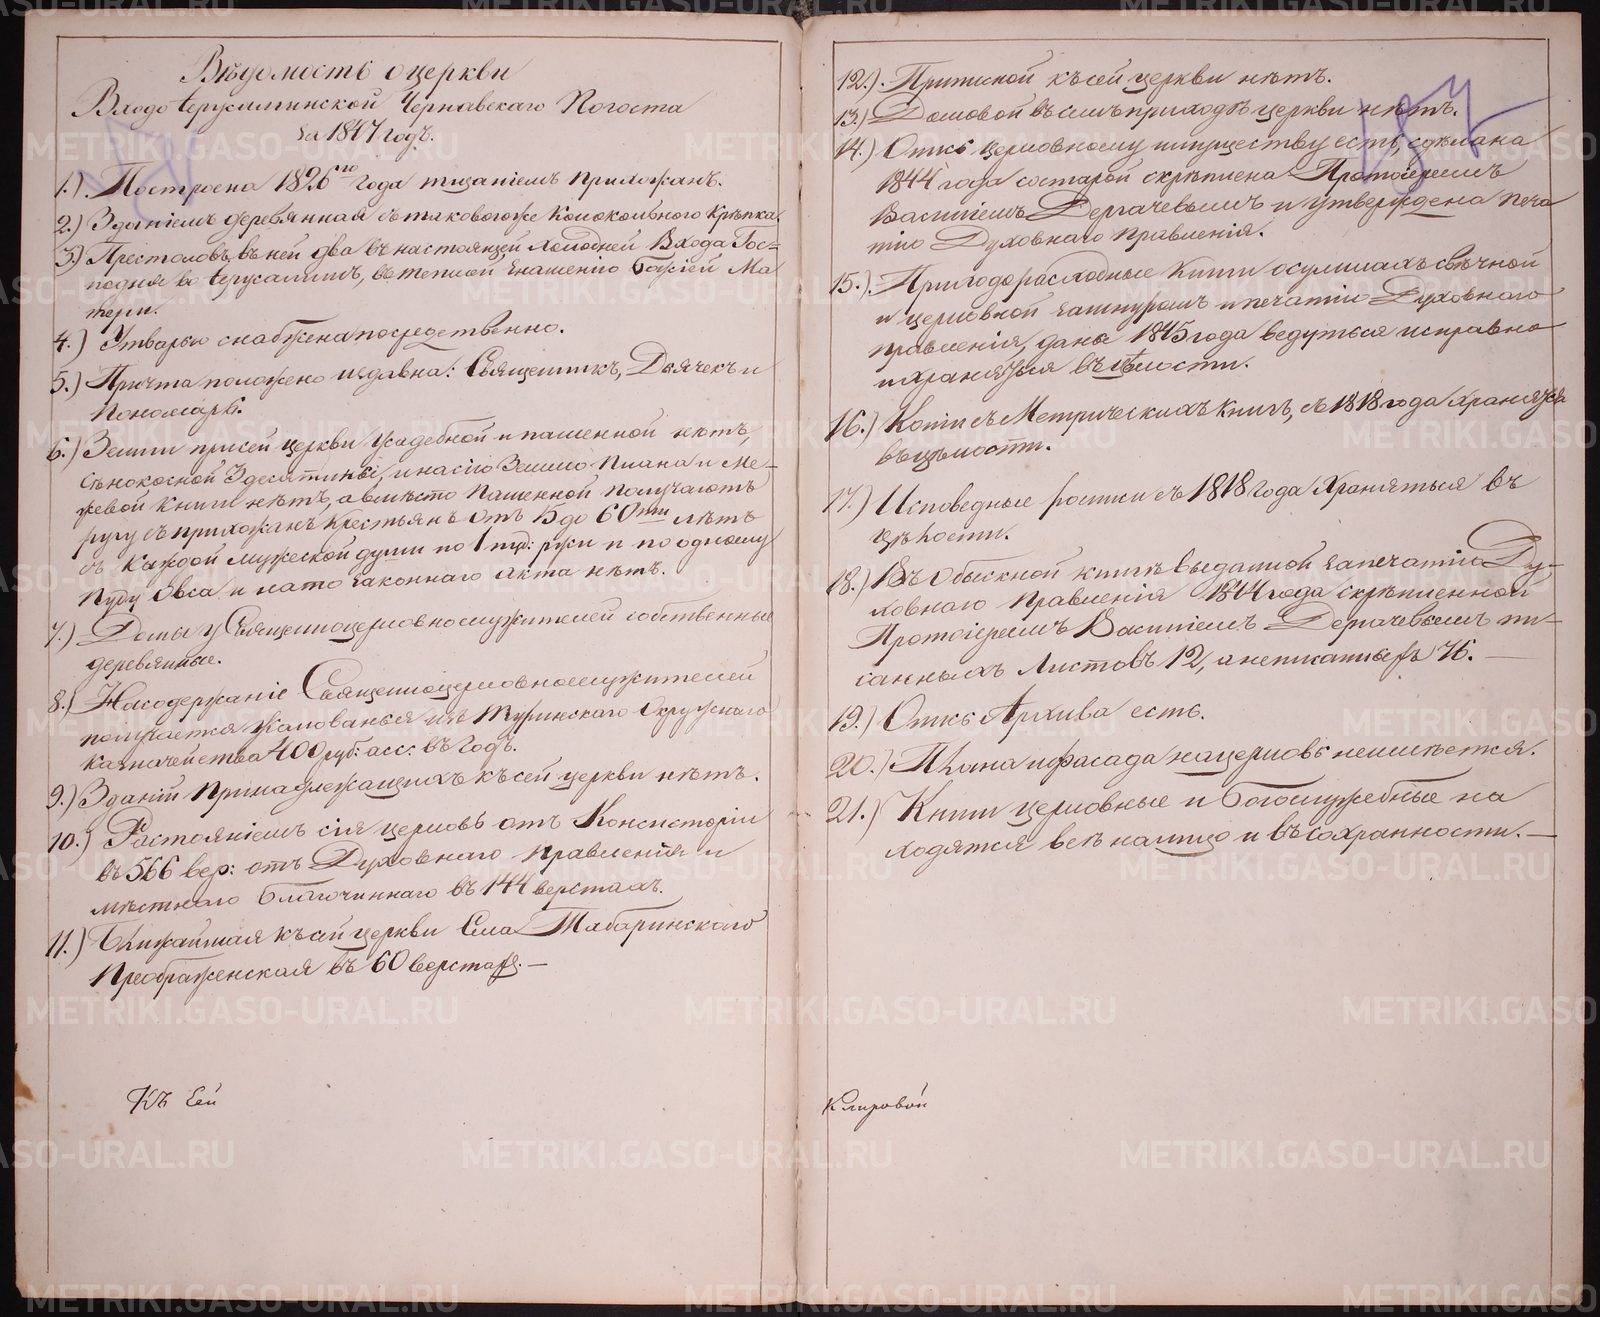 Вѣдомость о церкви
Входоіерусалимской Чернавскаго Погоста
за 1847 годъ.
1.) Построена 1826го года тщаніемъ прихожанъ.
2.) Зданіемъ деревянная съ таковогоже колокольнею крѣпка.
3.) Престоловъ въ ней два въ настоящей холодней Входа Гос-
подня во Іерусалимъ, въ теплой Знаменію Божіей Ма
тери.
4.) Утварью снабжена посредственно.
5.) Причта положено издавна: Священникъ, Дьячекъ и
Пономарь.
6.) Земли при сей церкви усадебной и пашенной нѣтъ,
сѣнокосной 3 десятины, и на сію землю плана и Ме-
жевой книги нѣтъ, а вмѣсто пашенной получаютъ
ругу съ прихожанъ крестьянъ отъ 15 до 60ти лѣтъ
съ каждой мужеской души по 1 пуд: ржи и по одному
пуду овса и на то законнаго акта нѣтъ.
7.) Домы у Священноцерковнослужителей собственные
деревянные.
8.) На содержаніе Священноцерковнослужителей
получается жалованья изъ Туринскаго Окружнаго
казначейства 400 руб: асс: въ годъ.
9.) Зданій принадлежащихъ къ сей церкви нѣтъ.
10.) Растояніемъ сія церковь отъ Консисторіи
въ 566 вер: отъ Духовнаго Правленія и
мѣстнаго Благочиннаго въ 144 верстахъ.
11.) Ближайшая къ сей церкви села Табаринскаго
Преображенская въ 60 верстахъ.—
Къ сей
12.) Приписной къ сей церкви нѣтъ.
13.) Домовой въ семъ приходѣ церкви нѣтъ.
14.) Опись церковному имуществу есть, сдѣлана
1844 года со старой скрѣплена Протоіереемъ
Василіемъ Дергачевымъ и утверждена печа
тью Духовнаго Правленія.
15.) Приходорасходные книги о суммахъ свѣчной
и церковной за шнуромъ и печатію Духовнаго
правленія, даны 1845 года ведуться исправно
и хранятся въ цѣлости.
16.) Копіи съ Метрическихъ книгъ, съ 1818 года хранятся
въ цѣлости.
17.) Исповедные росписи съ 1818 года храняться въ
цѣлости.
18.) Въ Обыскной книгѣ выданной за печатію Ду-
ховнаго Правленія 1844 года скрѣпленной
Протоіереемъ Василіемъ Дергачевымъ пи-
санныхъ листовъ 12, а неписанныхъ 76.—
19.) Опись Архива есть.
20.) Плана и фасада на церковь неимѣется.
21.) Книги церковные и Богослужебные на
ходятся всѣ на лицо и въ сохранности.—
Клировой
METRIKI.GASO-URAL.RU